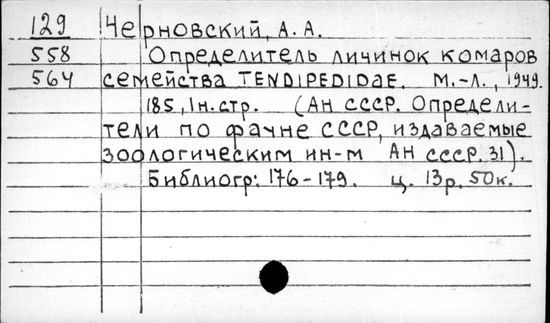 129 Черновский, А. А.
558 Определитель личинок комаров
564 семейства TENDIPEDIDAE. М.-Л., 1949.
185, 1н. стр. (Ан СССР. Определи-
тели по фауне СССР, издаваемые
зоологическим ин-м АН СССР. 31).
Библиогр: 176-179. ц. 13р. 50к.